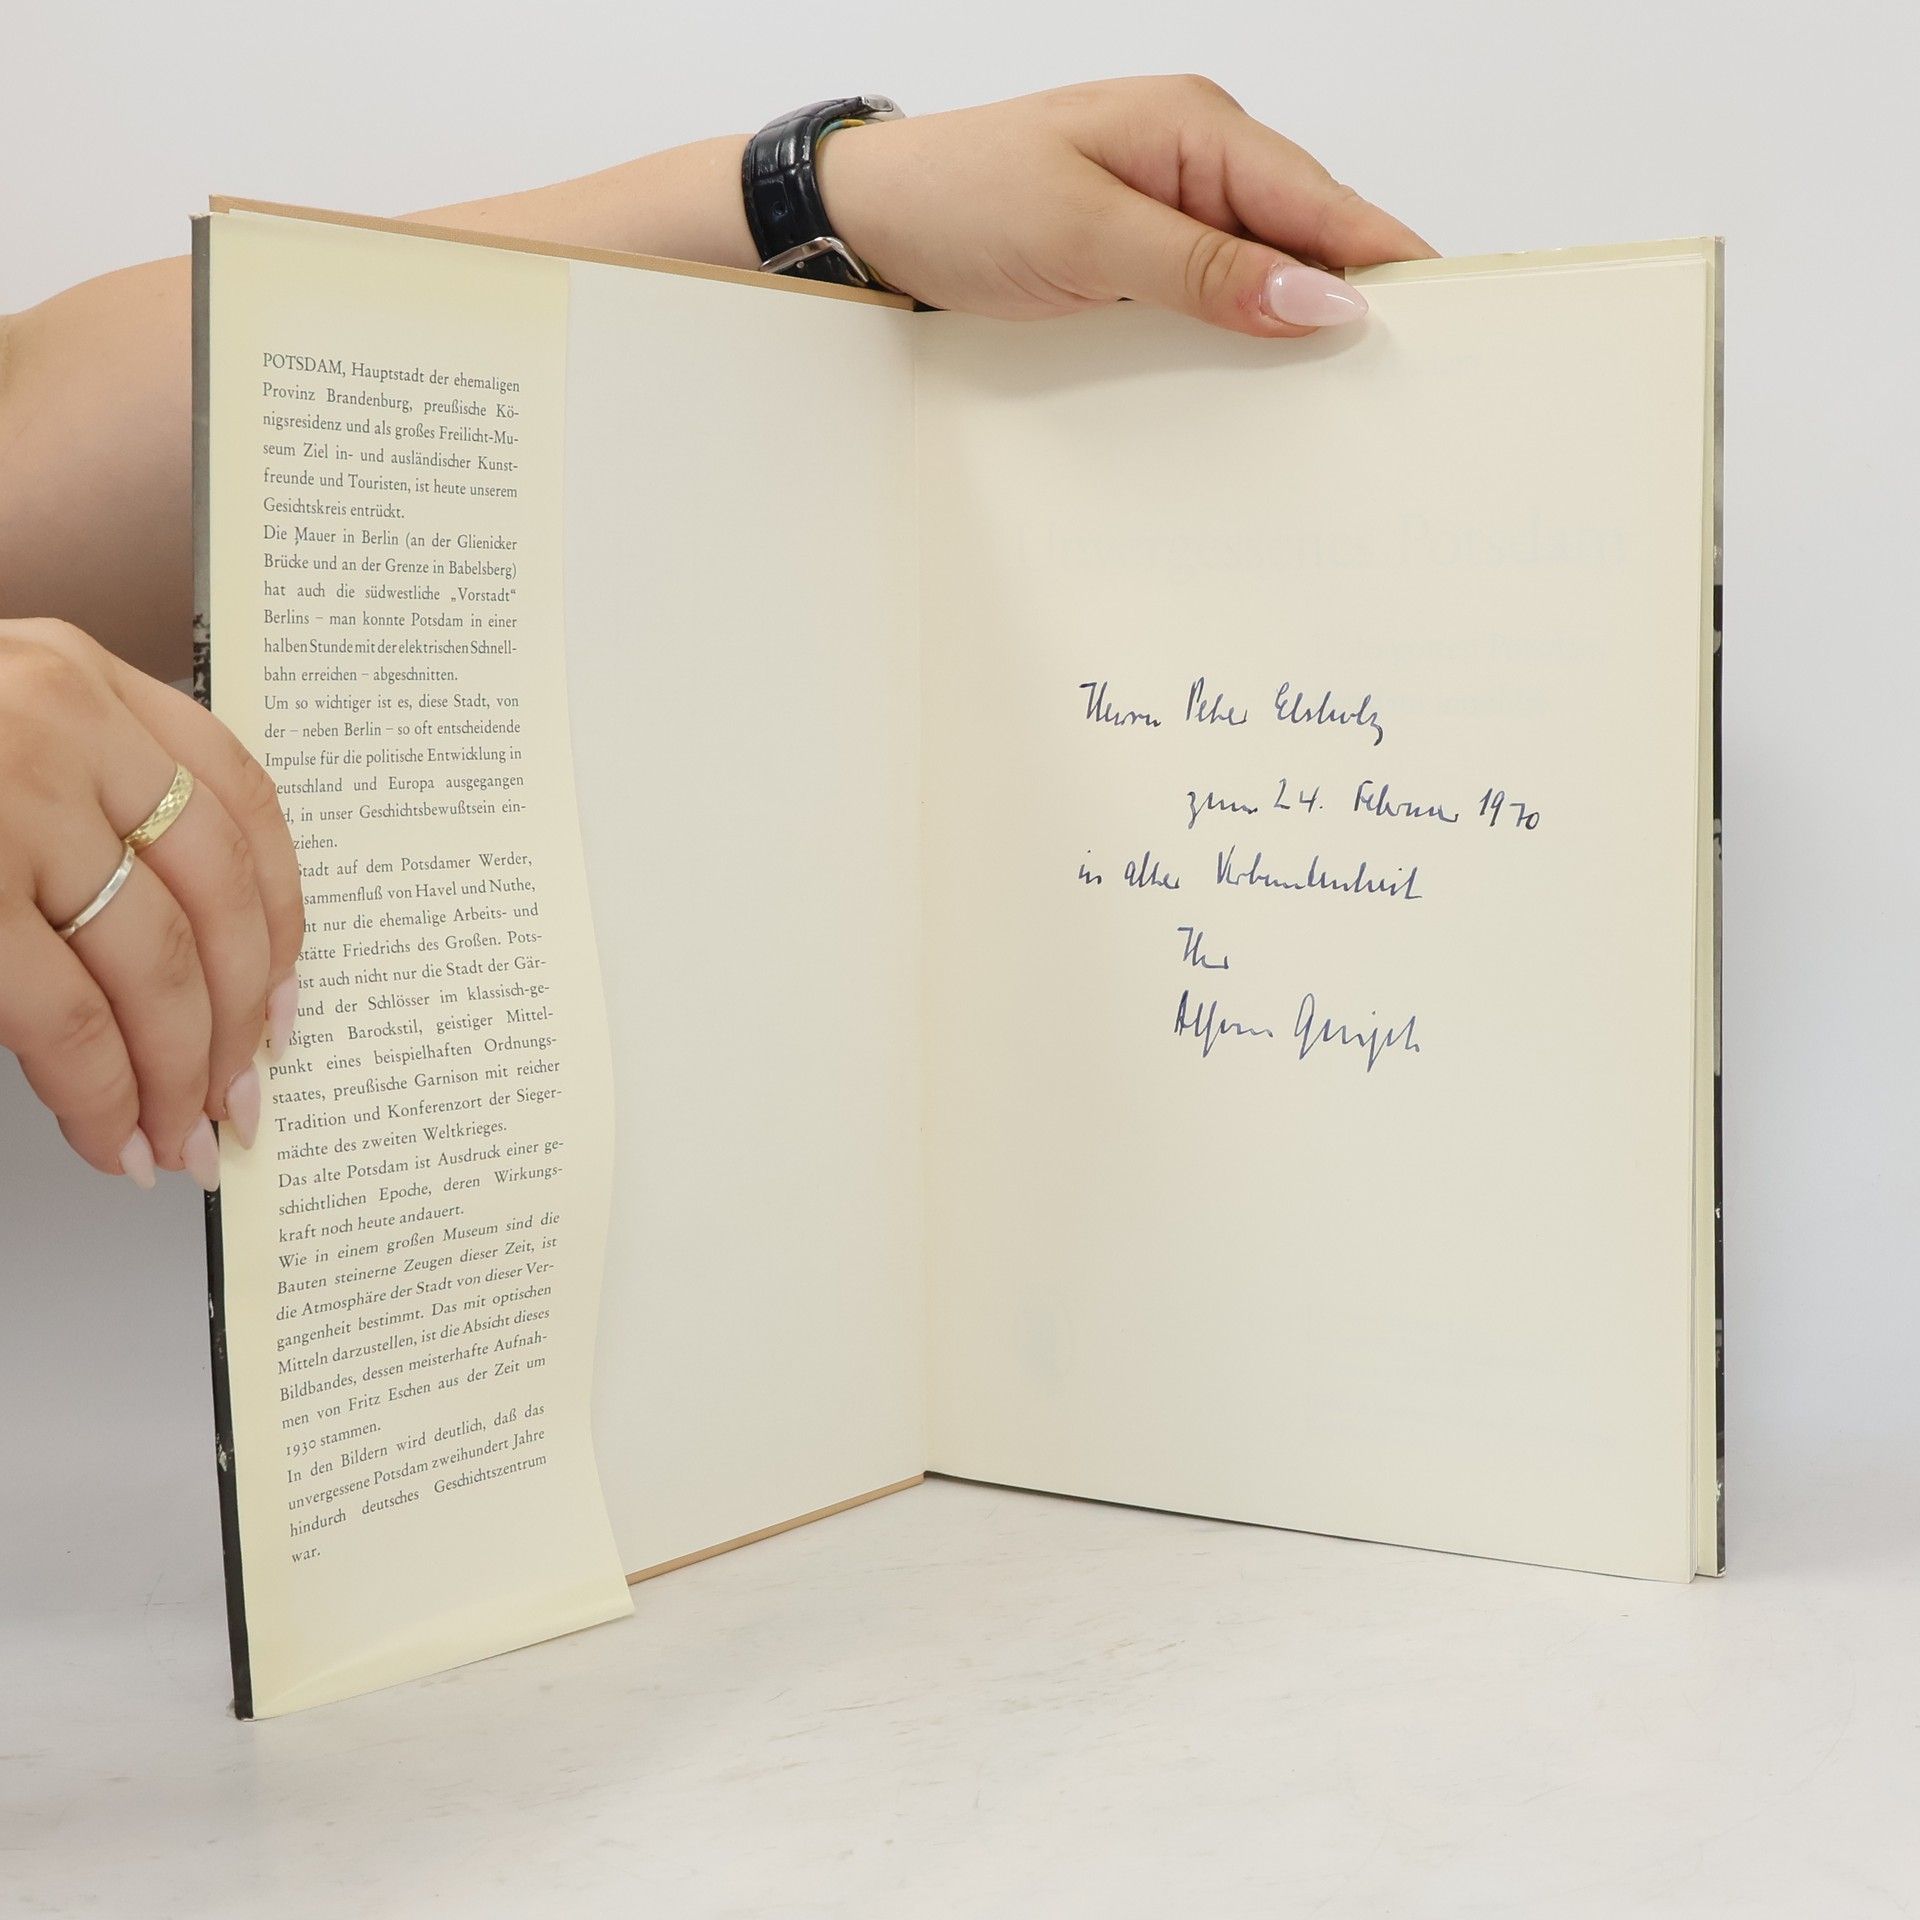 POTSDAM, Hauptstadt der ehemaligen
Provinz Brandenburg, preußische Kö-
nigsresidenz und als großes Freilicht-Mu-
seum Ziel in- und ausländischer Kunst-
freunde und Touristen, ist heute unserem
Gesichtskreis entrückt.
Die Mauer in Berlin (an der Glienicker
Brücke und an der Grenze in Babelsberg)
hat auch die südwestliche „Vorstadt“
Berlins – man konnte Potsdam in einer
halben Stunde mit der elektrischen Schnell-
bahn erreichen – abgeschnitten.
Um so wichtiger ist es, diese Stadt, von
der – neben Berlin – so oft entscheidende
Impulse für die politische Entwicklung in
eutschland und Europa ausgegangen
d, in unser Geschichtsbewußtsein ein-
ziehen.
Stadt auf dem Potsdamer Werder,
sammenfluß von Havel und Nuthe,
ht nur die ehemalige Arbeits- und
stätte Friedrichs des Großen. Pots-
ist auch nicht nur die Stadt der Gär-
und der Schlösser im klassisch-ge-
ßigten Barockstil, geistiger Mittel-
punkt eines beispielhaften Ordnungs-
staates, preußische Garnison mit reicher
Tradition und Konferenzort der Sieger-
mächte des zweiten Weltkrieges.
Das alte Potsdam ist Ausdruck einer ge-
schichtlichen Epoche, deren Wirkungs-
kraft noch heute andauert.
Wie in einem großen Museum sind die
Bauten steinerne Zeugen dieser Zeit, ist
die Atmosphäre der Stadt von dieser Ver-
gangenheit bestimmt. Das mit optischen
Mitteln darzustellen, ist die Absicht dieses
Bildbandes, dessen meisterhafte Aufnah-
men von Fritz Eschen aus der Zeit um
1930 stammen.
In den Bildern wird deutlich, daß das
unvergessene Potsdam zweihundert Jahre
hindurch deutsches Geschichtszentrum
war.
Herrn Peter Elsholz
zum 24. Februar 1970
in alter Verbundenheit
Ihr